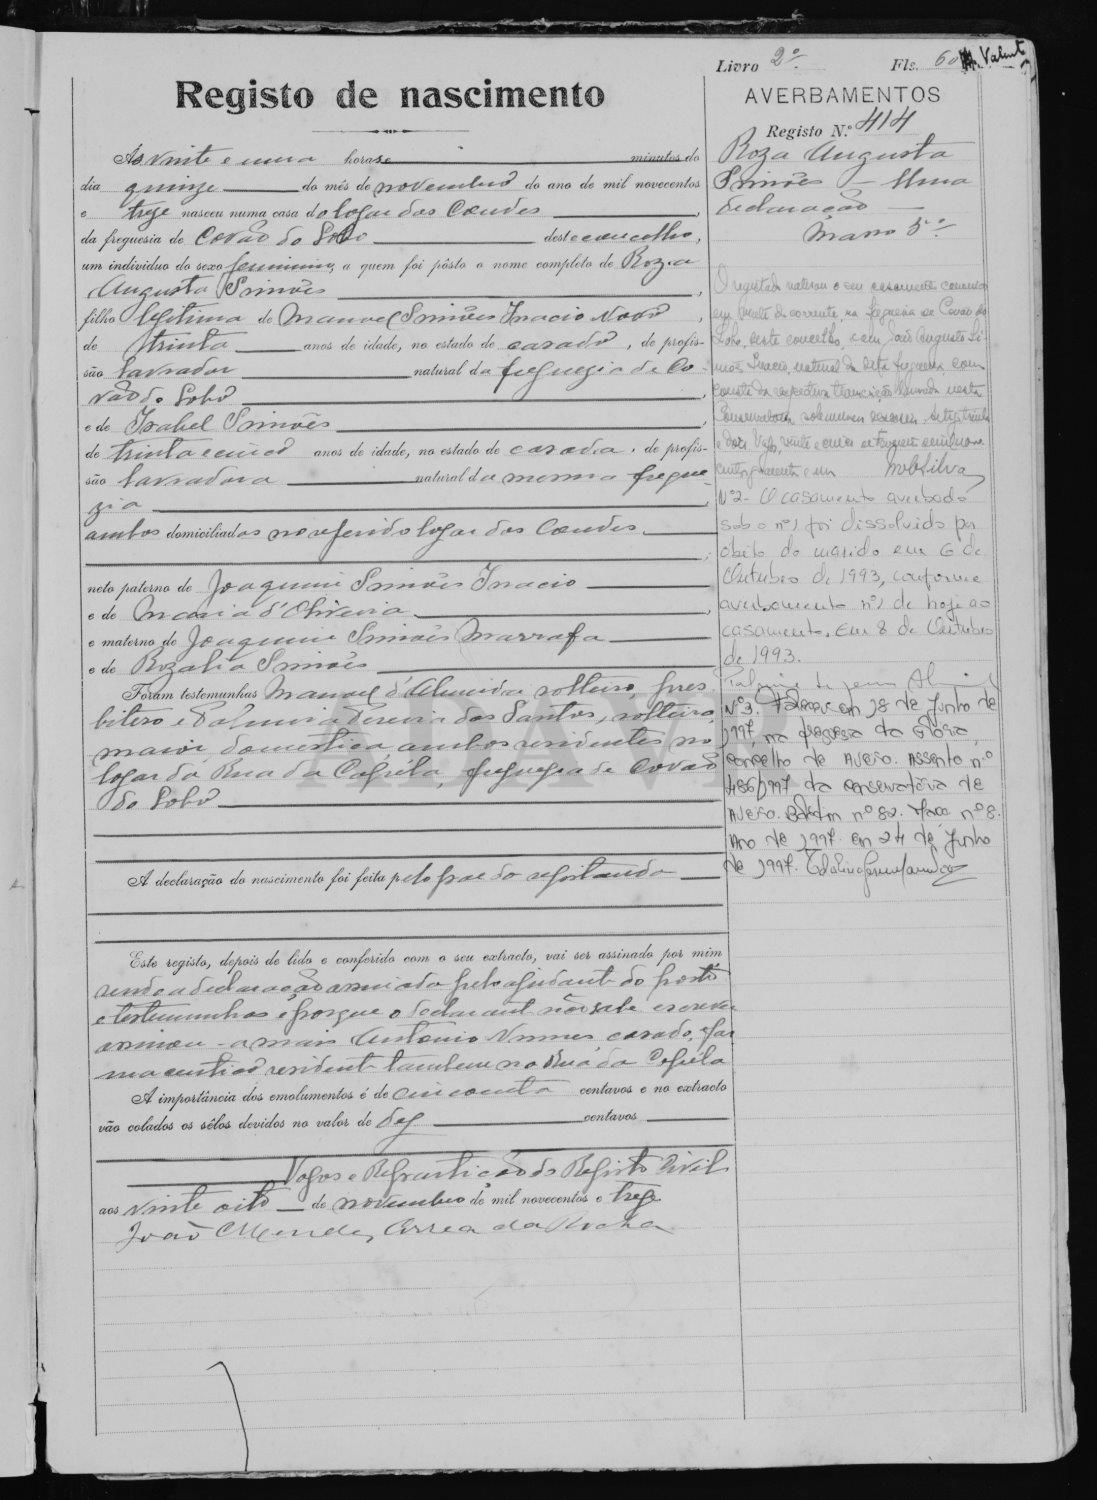 Livro 2º Fls. 60
Registo de nascimento
As vinte e uma horas e minutos do
dia quinze do mês de novembro do ano de mil novecentos
e treze nasceu numa casa do logar das Cendes,
da freguesia de Covão do Lobo deste concelho,
um individuo do sexo feminino, a quem foi pôsto o nome completo de Roza
Augusta Simões,
filho legitima de Manuel Simões Inacio Novo,
de trinta anos de idade, no estado de casado, de profis-
são lavrador natural da freguezia de Co-
vão do Lobo,
e de Isabel Simões,
de trinta e cinco anos de idade, no estado de casada, de profis-
são lavradora natural da mesma fregue-
zia
ambos domiciliados no referido logar das Cendes.
neto paterno de Joaquim Simões Inacio
e de Maria d'Oliveira,
e materno de Joaquim Simões Marrafa
e de Rozalia Simões
Foram testemunhas Manuel d'Almeida solteiro, pres-
bitero e Palmira Pereira dos Santos, solteira,
maior, domestica ambos residentes no
logar da Rua da Capéla, freguezia de Covão
do Lobo
A declaração do nascimento foi feita pelo pae do registando
Este registo, depois de lido e conferido com o seu extracto, vai ser assinado por mim
sendo a declaração assinada pelo ajudante do posto
e testemunhas e porque o declarante não sabe escrever
assinou a mais Antonio Nunes, casado, far-
maceutico residente tambem na Rua da Capéla
A importância dos emolumentos é de cincoenta centavos e no extracto
vão colados os sêlos devidos no valor de dez centavos
Vagos e Repartição do Registo Civil
aos vinte oito de novembro de mil novecentos e treze
João Mendes Correa da Rocha
AVERBAMENTOS
Registo N.º 414
Roza Augusta
Simões — Uma
declaração —
Maço 5º
O registado naterou o seu casamento canonico
em vinte do corrente, na freguesia de Covão do
Lobo, deste concelho, com João Augusto Si-
mões Inacio, natural da dita freguesia, como
consta da respectiva transcrição lavrada nesta
Conservatoria sob numero
e dois. Vagos, vinte e cinco de
centos quarenta e um
Nº2 - O casamento averbado
sob o nº1 foi dissolvido por
óbito do marido em 6 de
Outubro de 1993, conforme
averbamento nº1 de hoje ao
casamento. Em 8 de Outubro
de 1993.
Nº3. Faleceu em 18 de Junho de
1997, na freguesia da Glória,
concelho de Aveiro. Assento nº
486/1997 da conservatória de
Aveiro. Boletim nº 82. Maço nº 8.
Ano de 1997. em 24 de Junho
de 1997.
ADAVR